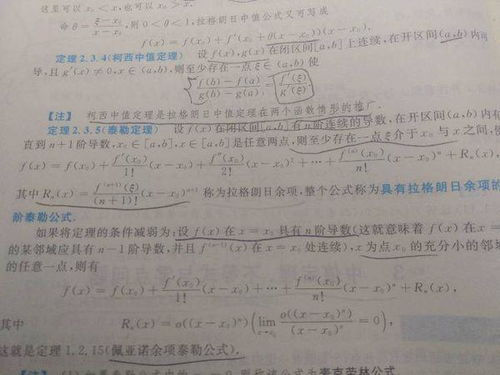 这里可以 x<x₀,也可以 x₀>x.
命 θ=(ξ-x₀)/(x-x₀),则0<θ<1,拉格朗日中值公式又可写成
f(x)=f(x₀)+f′(x₀+θ(x-x₀))(x-x₀).
定理2.3.4(柯西中值定理) 设f(x),g(x)在闭区间[a,b]上连续,在开区间(a,b)内可
导,且g′(x)≠0,x∈(a,b),则至少存在一点ξ∈(a,b)使
(f(b)-f(a))/(g(b)-g(a))=f′(ξ)/g′(ξ)
【注】 柯西中值定理是拉格朗日中值定理在两个函数情形的推广.
定理2.3.5(泰勒定理) 设f(x)在闭区间[a,b]有n阶连续的导数,在开区间(a,b)内有
直到n+1阶导数,x₀∈[a,b],x∈[a,b]是任意两点,则至少存在一点ξ介于x₀与x之间,使
f(x)=f(x₀)+f′(x₀)/1!(x-x₀)+f″(x₀)/2!(x-x₀)²+⋯+f⁽ⁿ⁾(x₀)/n!(x-x₀)ⁿ+Rₙ(x),
其中Rₙ(x)=f⁽ⁿ⁺¹⁾(ξ)/(n+1)!(x-x₀)ⁿ⁺¹称为拉格朗日余项,整个公式称为具有拉格朗日余项的
阶泰勒公式.
如果将定理的条件减弱为:设f(x)在x=x₀具有n阶导数(这就意味着f(x)在x=
的某邻域应具有n-1阶导数,并且f⁽ⁿ⁻¹⁾(x)在x=x₀处连续),x为点x₀的充分小的邻域
的任意一点,则有
f(x)=f(x₀)+f′(x₀)/1!(x-x₀)+⋯+f⁽ⁿ⁾(x₀)/n!(x-x₀)ⁿ+Rₙ(x),
其中 Rₙ(x)=o((x-x₀)ⁿ)(lim x→x₀ o((x-x₀)ⁿ)/(x-x₀)ⁿ=0),
这就是定理1.2.15(佩亚诺余项泰勒公式).